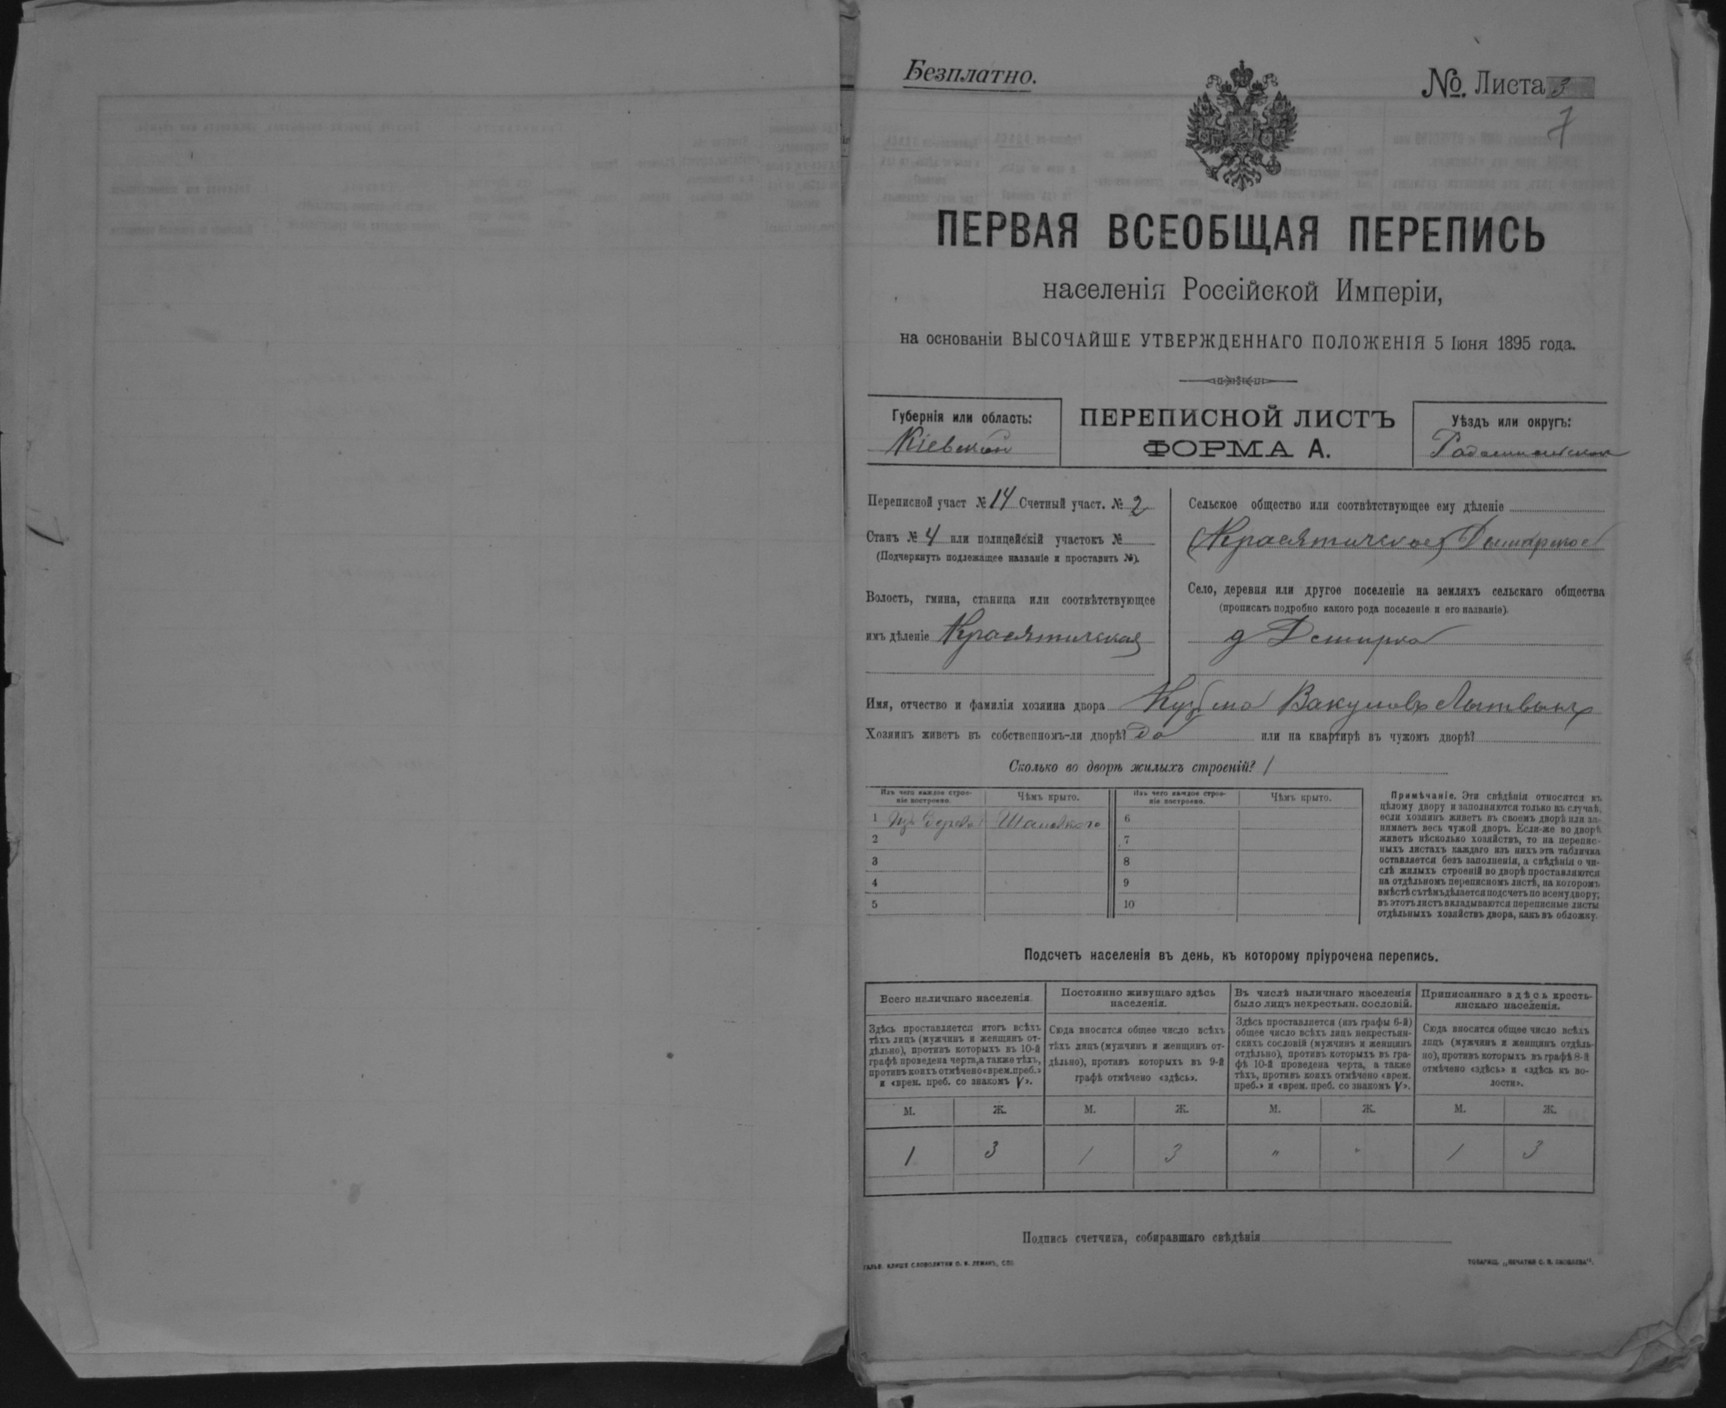 Безплатно.
№. Листа 3
7
ПЕРВАЯ ВСЕОБЩАЯ ПЕРЕПИСЬ
населенія Россійской Имперіи,
на основаніи ВЫСОЧАЙШЕ УТВЕРЖДЕННАГО ПОЛОЖЕНІЯ 5 Іюня 1895 года.
Губернія или область:
Кіевской
ПЕРЕПИСНОЙ ЛИСТЪ
ФОРМА А.
Уѣздъ или округъ:
Переписной участ № 14 Счетный участ. № 2
Станъ № 4 или полицейскій участокъ №
(Подчеркнуть подлежащее названіе и проставить №).
Волость, гмина, станица или соотвѣтствующее
имъ дѣленіе Красятичская
Сельское общество или соотвѣтствующее ему дѣленіе
(Красятичское)
Село, деревня или другое поселеніе на земляхъ сельскаго общества
(прописать подробно какого рода поселеніе и его названіе).
д
Имя, отчество и фамилія хозяина двора Кузьма Вакуловъ Лытвынъ
Хозяинъ живетъ въ собственномъ-ли дворѣ? Да или на квартирѣ въ чужомъ дворѣ?
Сколько во дворѣ жилыхъ строеній? 1
Изъ чего каждое строе-
ніе построено.
Чѣмъ крыто.
Изъ чего каждое строе-
ніе построено.
Чѣмъ крыто.
1 Изъ дерева
6
2
7
3
8
4
9
5
10
Примѣчаніе. Эти свѣдѣнія относятся къ
цѣлому двору и заполняются только въ случаѣ,
если хозяинъ живетъ въ своемъ дворѣ или за-
нимаетъ весь чужой дворъ. Если-же во дворѣ
живетъ нѣсколько хозяйствъ, то на перепис-
ныхъ листахъ каждаго изъ нихъ эта табличка
оставляется безъ заполненія, а свѣдѣнія о чи-
слѣ жилыхъ строеній во дворѣ проставляются
на отдѣльномъ переписномъ листѣ, на которомъ
вмѣстѣ съ тѣмъ дѣлается подсчетъ по всему двору;
въ этотъ листъ вкладываются переписные листы
отдѣльныхъ хозяйствъ двора, какъ въ обложку.
Подсчетъ населенія въ день, къ которому пріурочена перепись.
Всего наличнаго населенія.
Здѣсь проставляется итогъ всѣхъ
тѣхъ лицъ (мужчинъ и женщинъ от-
дѣльно), противъ которыхъ въ 10-й
графѣ проведена черта, а также тѣхъ,
противъ коихъ отмѣчено «врем. преб.»
и «врем. преб. со знакомъ V».
Постоянно живущаго здѣсь
населенія.
Сюда вносится общее число всѣхъ
тѣхъ лицъ (мужчинъ и женщинъ от-
дѣльно), противъ которыхъ въ 9-й
графѣ отмѣчено «здѣсь».
Въ числѣ наличнаго населенія
было лицъ некрестьян. сословій.
Здѣсь проставляется (изъ графы 6-й)
общее число всѣхъ лицъ некрестьян-
скихъ сословій (мужчинъ и женщинъ
отдѣльно), противъ которыхъ въ гра-
фѣ 10-й проведена черта, а также
тѣхъ, противъ коихъ отмѣчено «врем.
преб.» и «врем. преб. со знакомъ V».
Приписаннаго здѣсь кресть-
янскаго населенія.
Сюда вносится общее число всѣхъ
лицъ (мужчинъ и женщинъ отдѣль-
но), противъ которыхъ въ графѣ 8-й
отмѣчено «здѣсь» и «здѣсь въ во-
лости».
М. Ж. М. Ж. М. Ж. М. Ж.
1 3 1 3 " " 1 3
Подпись счетчика, собиравшаго свѣдѣнія